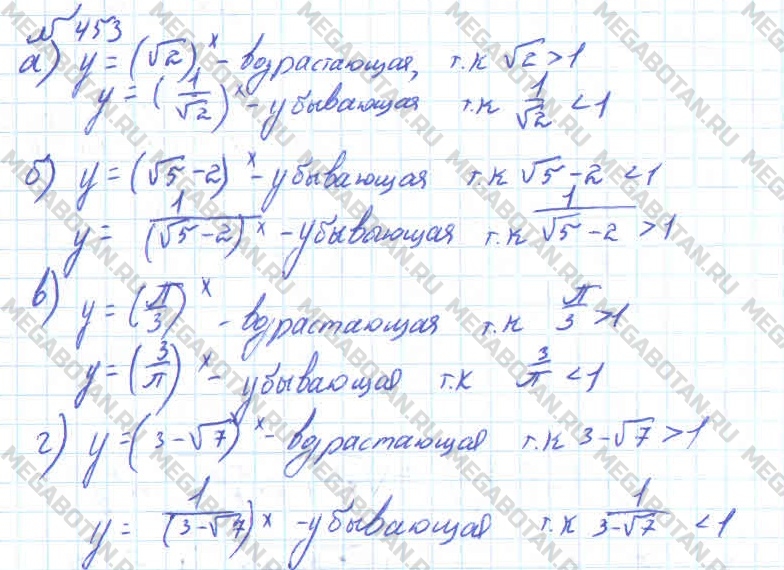 № 453
а) y = (√2)^x - возрастающая, т.к √2 > 1
y = (1/√2)^x - убывающая т.к 1/√2 < 1
б) y = (√5 - 2)^x - убывающая т.к √5 - 2 < 1
y = 1/(√5 - 2)^x - убывающая т.к 1/√5 - 2 > 1
в) y = (π/3)^x - возрастающая т.к π/3 > 1
y = (3/π)^x - убывающая т.к 3/π < 1
г) y = (3 - √7)^x - возрастающая т.к 3 - √7 > 1
y = 1/(3 - √7)^x - убывающая т.к 1/3 - √7 < 1
MEGABOTAN.RU